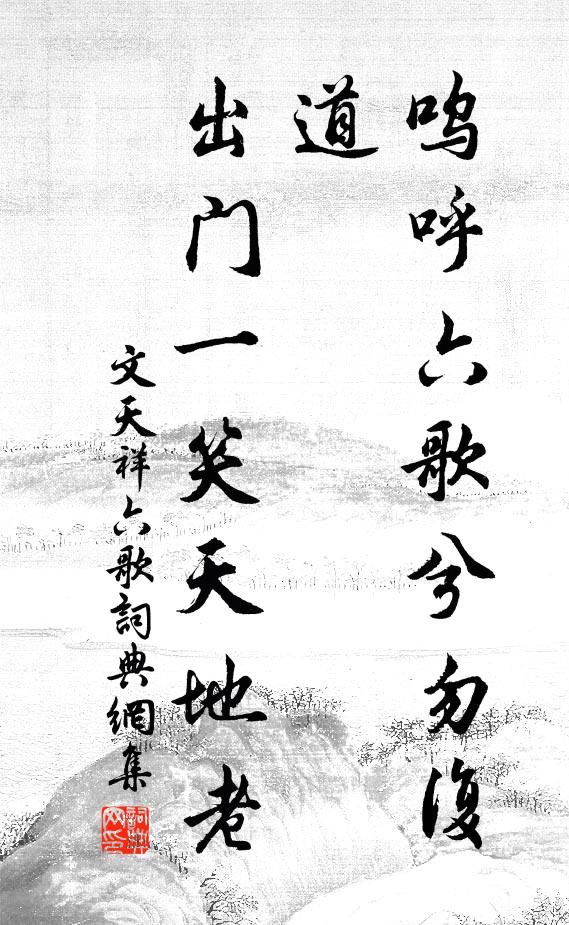 呜呼六歌兮勿复
道
出门一笑天地老
文天祥六歌詞典網集